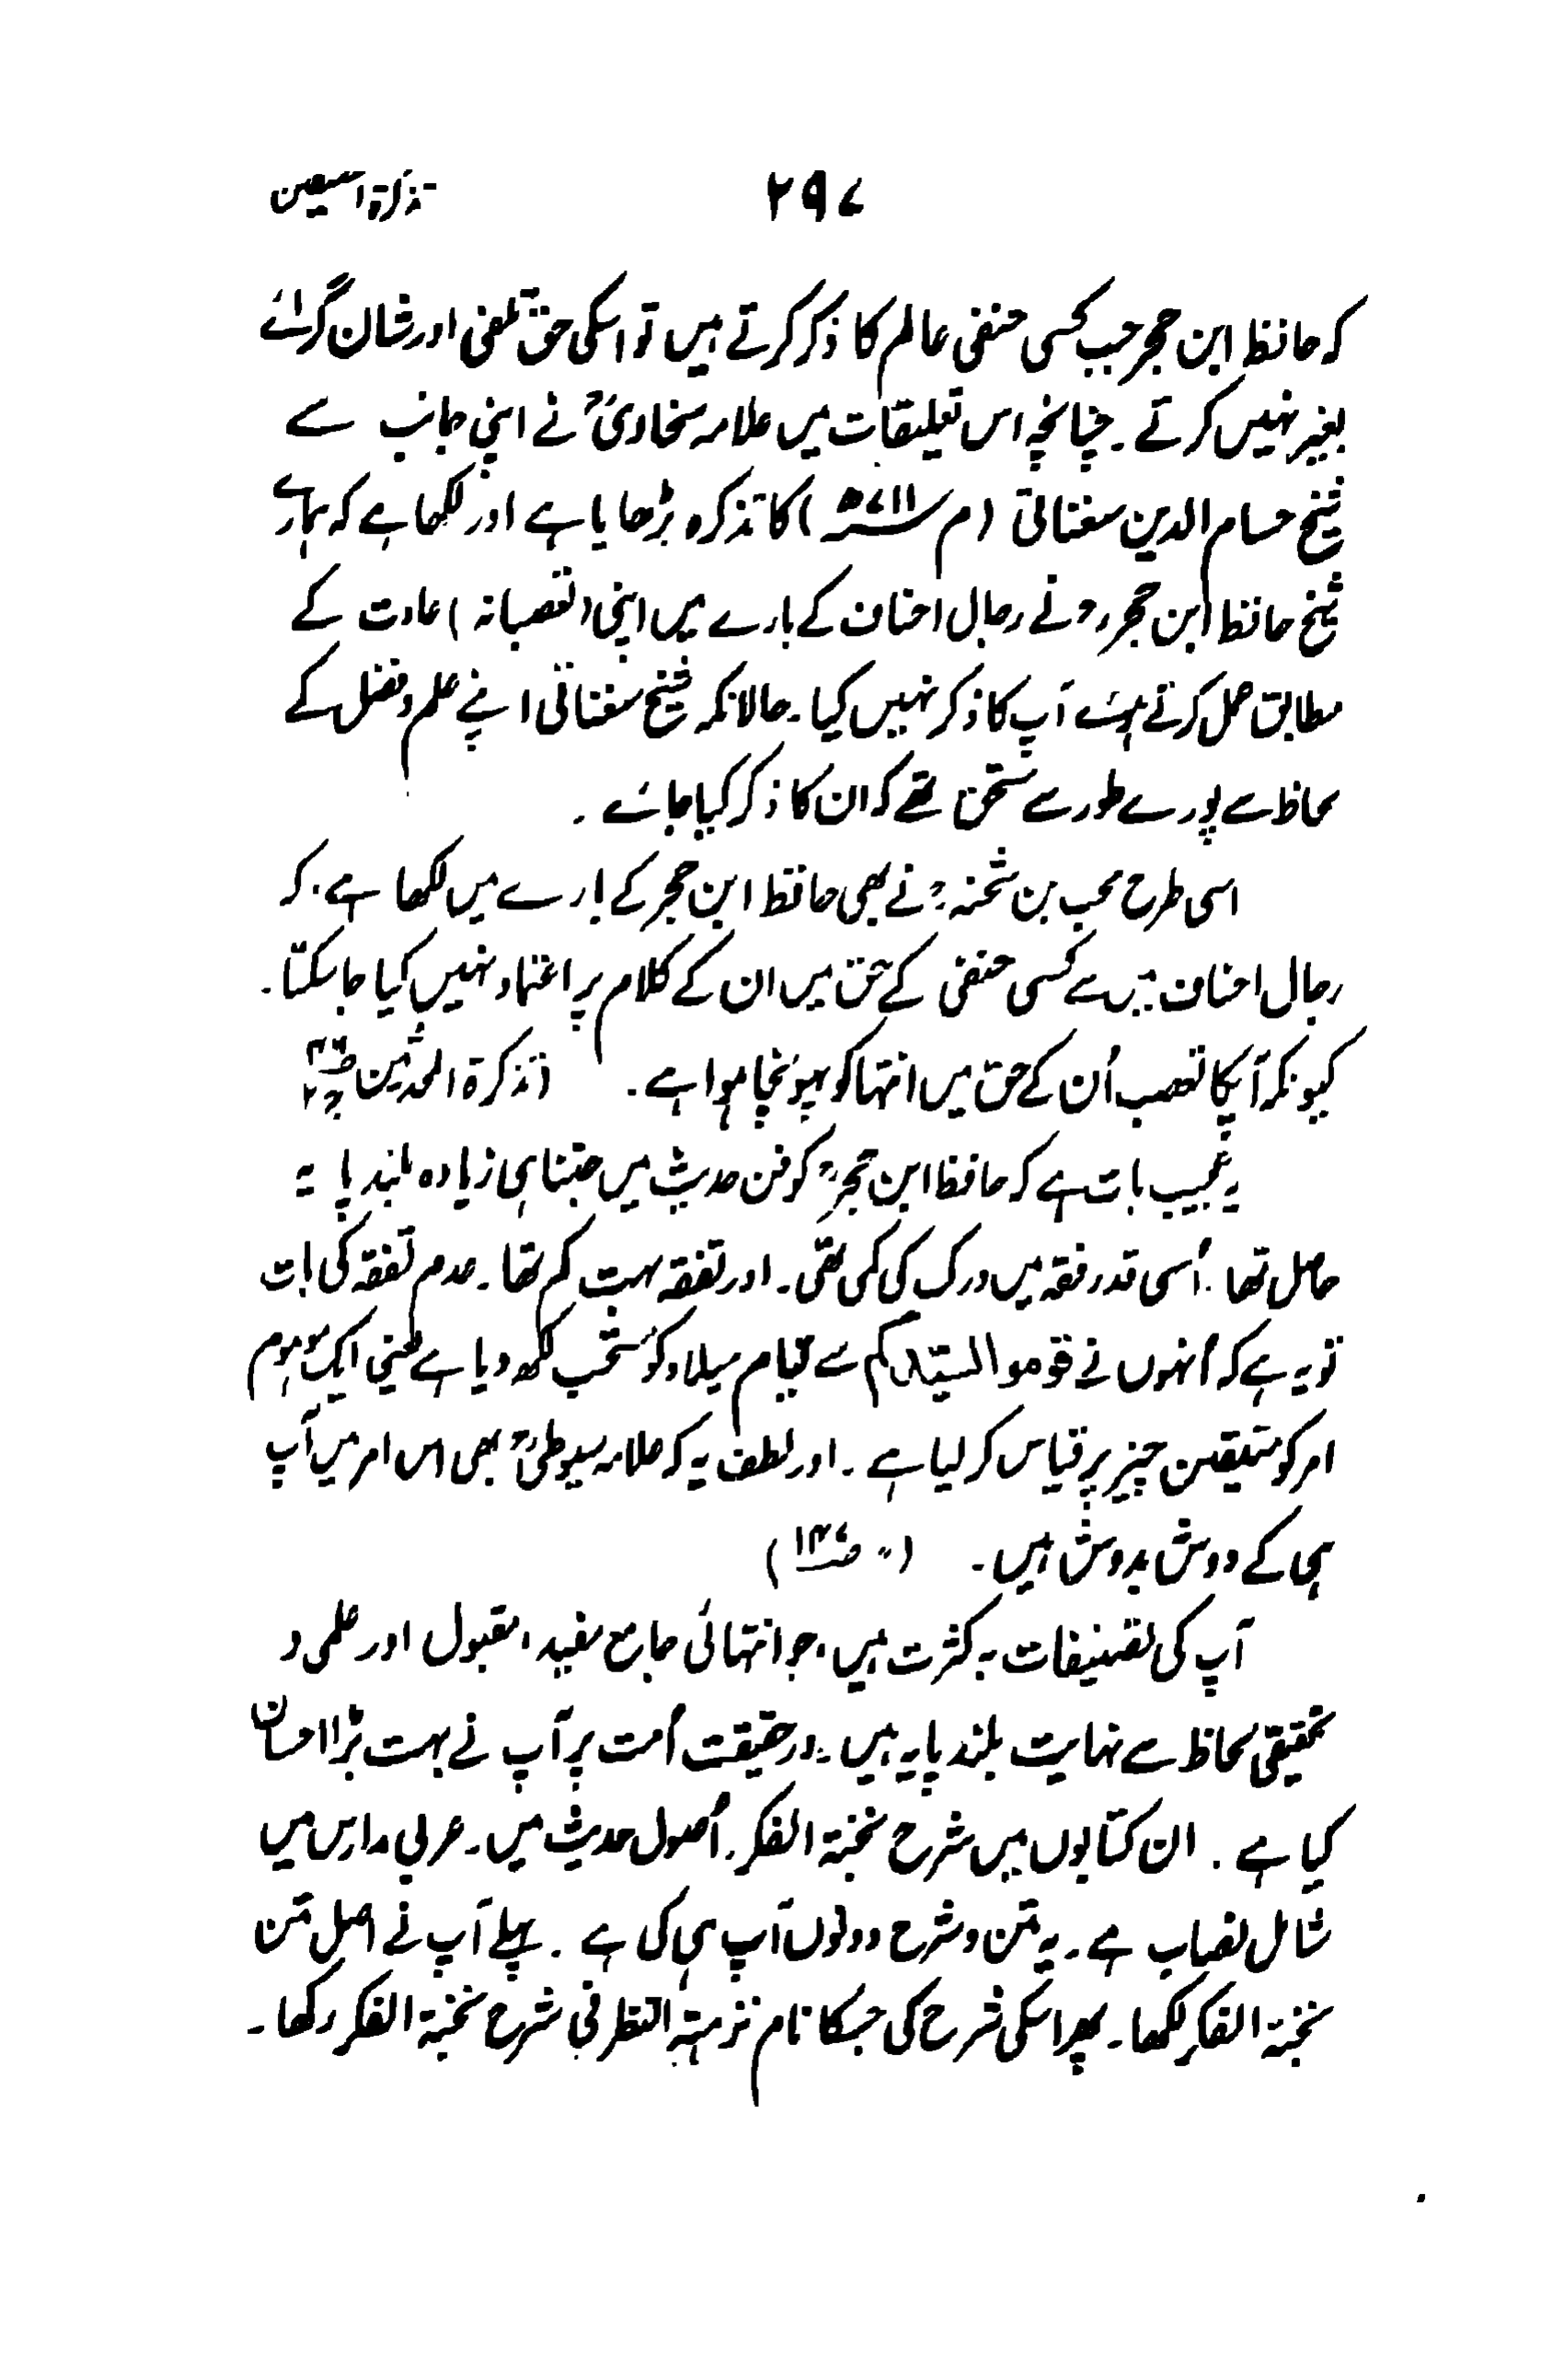 ۲۹۷
کہ حافظ ابن حجر جب کسی حنفی عالم کا ذکر کرتے ہیں تو اسکی حق تلفی اور شان گرائے
بغیر نہیں کرتے ۔ چنانچہ اس تعلیقات میں علامہ سخاویؒ نے اپنی جانب سے
شیخ حسام الدین سغناقی (م ۷۱۱ھ) کا تذکرہ بڑھایا ہے اور لکھا ہے کہ ہمارے
شیخ حافظ ابن حجرؒ نے رجال احناف کے بارے میں اپنی (تعصبانہ) عادت کے
مطابق عمل کرتے ہوئے آپ کا ذکر نہیں کیا ۔ حالانکہ شیخ سغناقی اپنے علم و فضل کے
لحاظ سے پورے طور سے مستحق تھے کہ ان کا ذکر کیا جائے ۔
اسی طرح محب بن شحنہؒ نے بھی حافظ ابن حجر کے بارے میں لکھا ہے ۔ کہ
رجال احناف میں سے کسی حنفی کے حق میں ان کے کلام پر اعتماد نہیں کیا جاسکتا ۔
کیونکہ آپکا تعصب اُن کے حق میں انتہا کو پہونچا ہوا ہے ۔ (تذکرۃ المحدثین
یہ عجیب بات ہے کہ حافظ ابن حجرؒ کو فن حدیث میں جتنا ہی زیادہ بلند پایہ
حاصل تھا ۔ اُسی قدر فقہ میں درک کی کمی تھی ۔ اور تفقہ بہت کم تھا ۔ عدم تفقہ کی بات
تو یہ ہے کہ اُنہوں نے قوموا لسیدکم سے قیام میلاد کو مستحب لکھ دیا ہے یعنی ایک موہوم
امر کو متیقن چیز پر قیاس کر لیا ہے ۔ اور لطف یہ کہ علامہ سیوطیؒ بھی اس امر میں آپ
ہی کے دوش بدوش ہیں ۔ (〃 ص۱۴۷)
آپ کی تصنیفات بہ کثرت ہیں، جو انتہائی جامع مفید، مقبول اور علمی و
تحقیقی لحاظ سے نہایت بلند پایہ ہیں ۔ درحقیقت اُمت پر آپ نے بہت بڑا احسان
کیا ہے ۔ ان کتابوں میں شرح نخبۃ الفکر ۔ اُصول حدیث میں ۔ عربی مدارس میں
شامل نصاب ہے ۔ یہ متن و شرح دونوں آپ ہی کی ہے ۔ پہلے آپ نے اصل متن
نخبۃ الفکر لکھا ۔ پھر اسکی شرح کی جسکا نام نزہۃ النظر فی شرح نخبۃ الفکر رکھا ۔